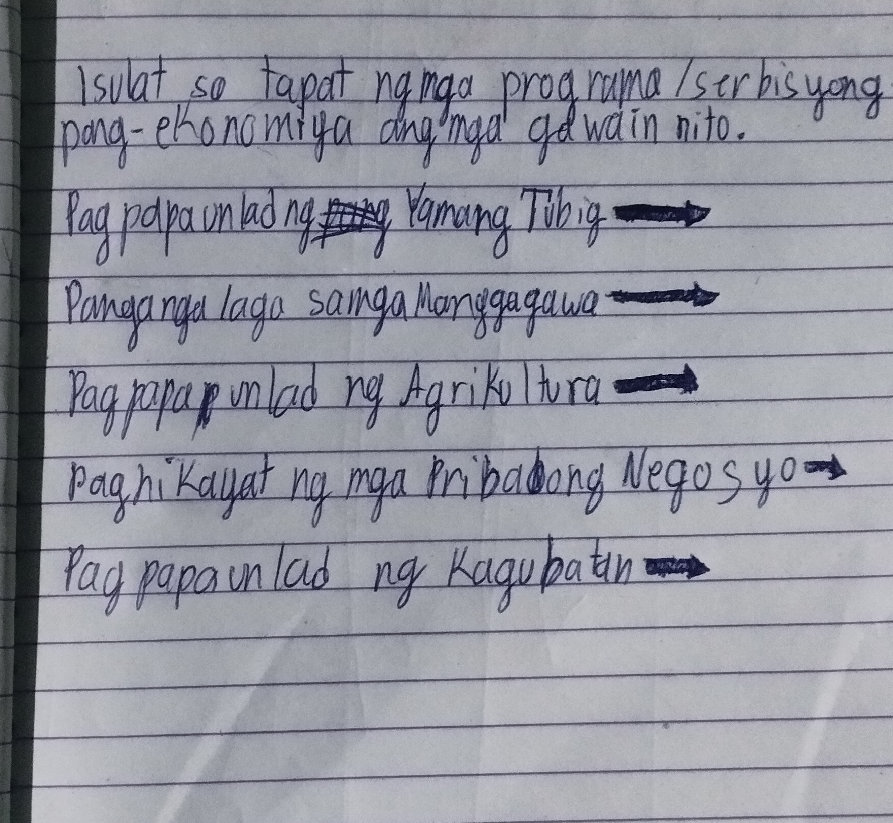 Isulat sa tapat ng mga programa/serbisyong
pang-ekonomiya ang mga gawain nito.
Pagpapaunlad ng Yamang Tubig →
Pangangalaga sa mga Manggagawa →
Pagpapaunlad ng Agrikultura →
Paghikayat ng mga Pribadong Negosyo →
Pagpapaunlad ng Kagubatan →